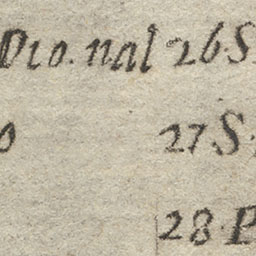 Dio. nal 26. S
o 27. S.
28. P